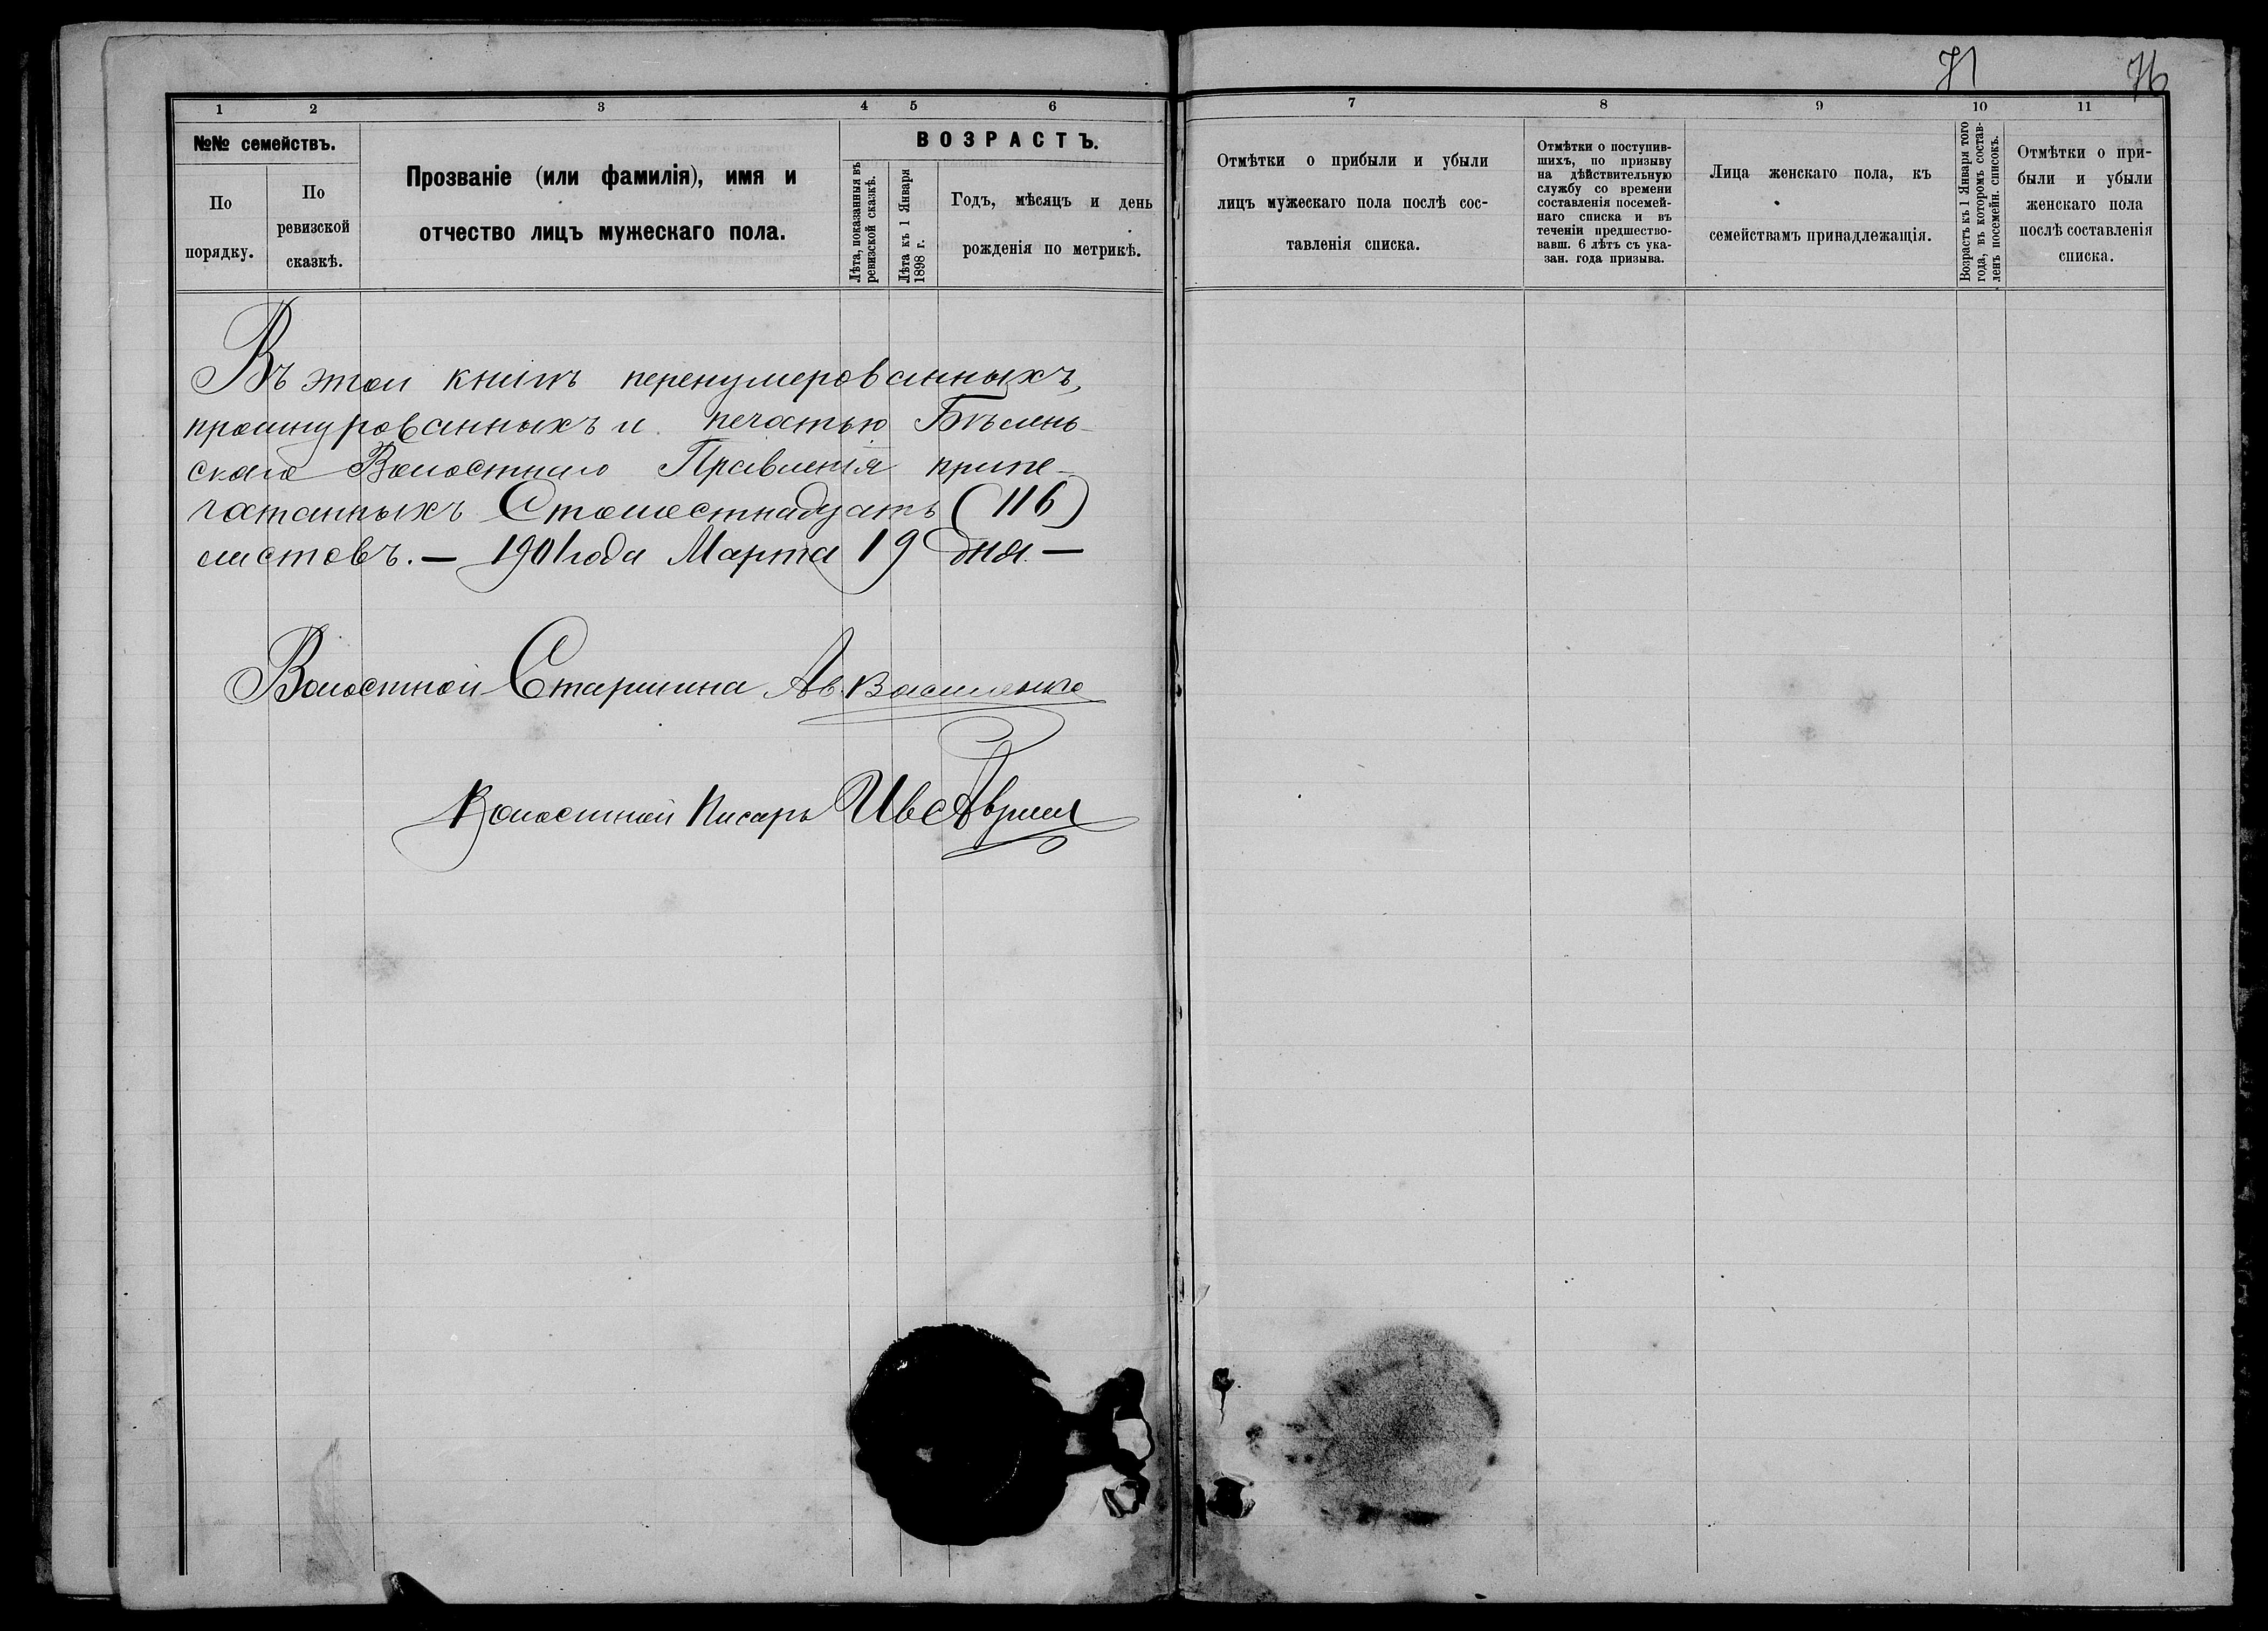 71 76
1 2 3 4 5 6
№№ семействъ.
По порядку.
По ревизской сказкѣ.
Прозваніе (или фамилія), имя и
отчество лицъ мужескаго пола.
ВОЗРАСТЪ.
Лѣта, показанныя въ
ревизской сказкѣ.
Лѣта къ 1 Января
1898 г.
Годъ, мѣсяцъ и день
рожденія по метрикѣ.
7 8 9 10 11
Отмѣтки о прибыли и убыли
лицъ мужескаго пола послѣ сос-
тавленія списка.
Отмѣтки о поступив-
шихъ, по призыву
на дѣйствительную
службу со времени
составленія посемей-
наго списка и въ
теченіи предшество-
вавш. 6 лѣтъ съ ука-
зан. года призыва.
Лица женскаго пола, къ
семействамъ принадлежащія.
Возрастъ къ 1 Января того
года, въ которомъ состав-
ленъ посемейн. списокъ.
Отмѣтки о при-
были и убыли
женскаго пола
послѣ составленія
списка.
Въ этой книгѣ перенумерованныхъ,
прошнурованныхъ и печатью Бѣлень-
скаго Волостнаго Правленія припе-
чатанныхъ Стошестнадцать (116)
листовъ. — 1901 года Марта 19 дня. —
Волостной Старшина Ав. Василенко
Волостной Писарь Ив